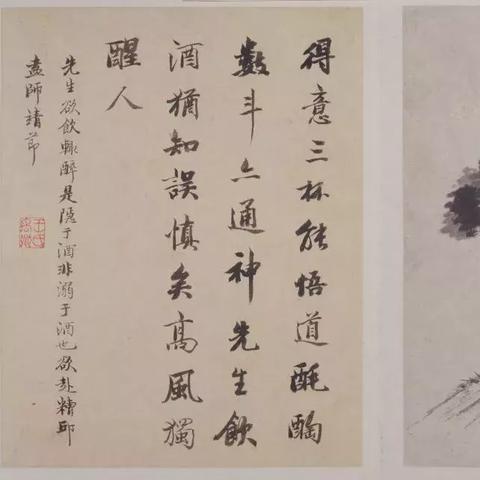 得意三杯能悟道酕醄
數斗亦通神先生飲
酒猶知誤慎矣高風獨
醒人
先生欲飲輒醉是隱于酒非溺于酒也欲赴糟邱
盍師靖節